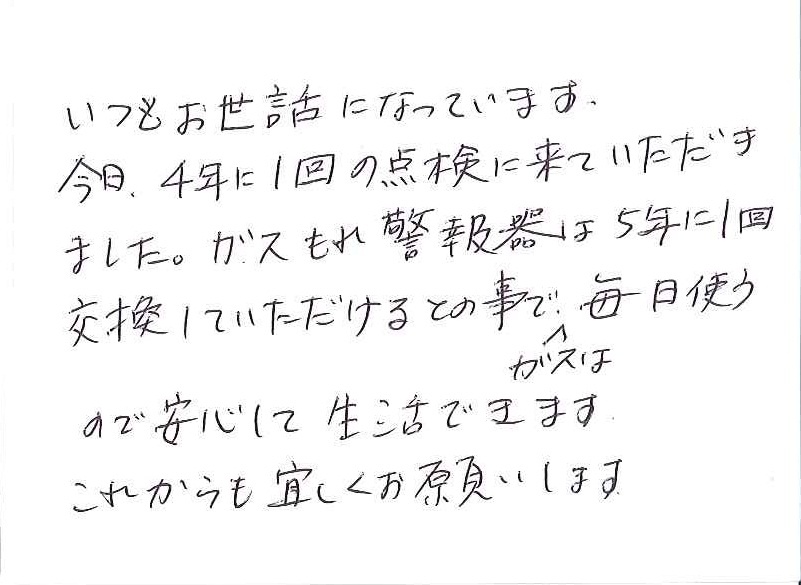 いつもお世話になっています.
今日、4年に1回の点検に来ていただき
ました。ガスもれ警報器は5年に1回
交換していただけるとの事で、毎日使う
ガスは
ので安心して生活できます.
これからも宜しくお願いします